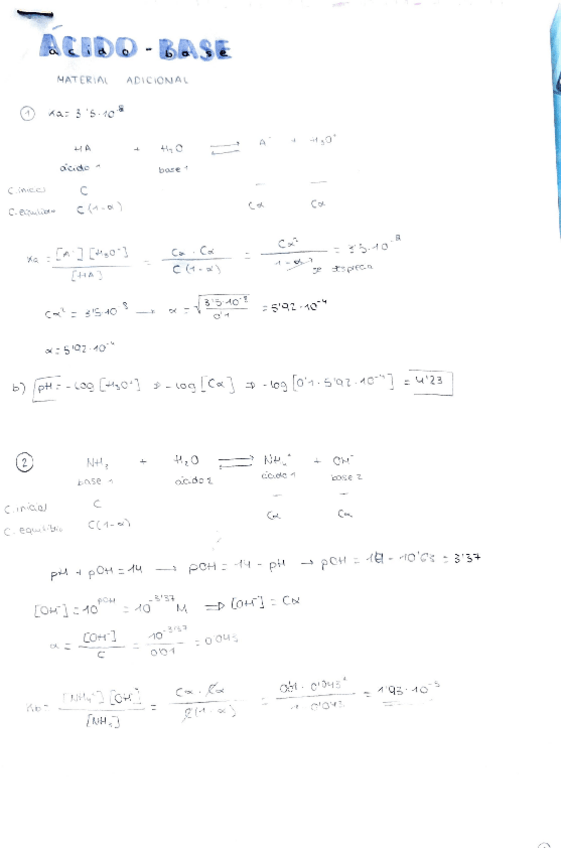 ÁCIDO - BASE
MATERIAL ADICIONAL
① Ka = 3'5·10⁻⁸
HA + H₂O ⇌ A⁻ + H₃O⁺
ácido 1 base 1
C. inicial C — —
C. equilibrio C(1-α) Cα Cα
Ka = [A⁻][H₃O⁺] / [HA] = Cα · Cα / C(1-α) = Cα² / 1-α = 3'5·10⁻⁸
se desprecia
Cα² = 3'5·10⁻⁸ → α = √(3'5·10⁻⁸ / 0'1) = 5'92·10⁻⁴
α = 5'92·10⁻⁴
b) pH = -log [H₃O⁺] ⇒ -log [Cα] ⇒ -log [0'1 · 5'92·10⁻⁴] = 4'23
② NH₃ + H₂O ⇌ NH₄⁺ + OH⁻
base 1 ácido 2 ácido 1 base 2
C. inicial C — —
C. equilibrio C(1-α) Cα Cα
pH + pOH = 14 → pOH = 14 - pH → pOH = 14 - 10'63 = 3'37
[OH⁻] = 10^pOH = 10⁻³'³⁷ M ⇒ [OH⁻] = Cα
α = [OH⁻] / C = 10⁻³'³⁷ / 0'01 = 0'043
Kb = [NH₄⁺][OH⁻] / [NH₃] = Cα · Cα / C(1-α) = 0'01 · 0'043² / 1 - 0'043 = 1'93·10⁻⁵